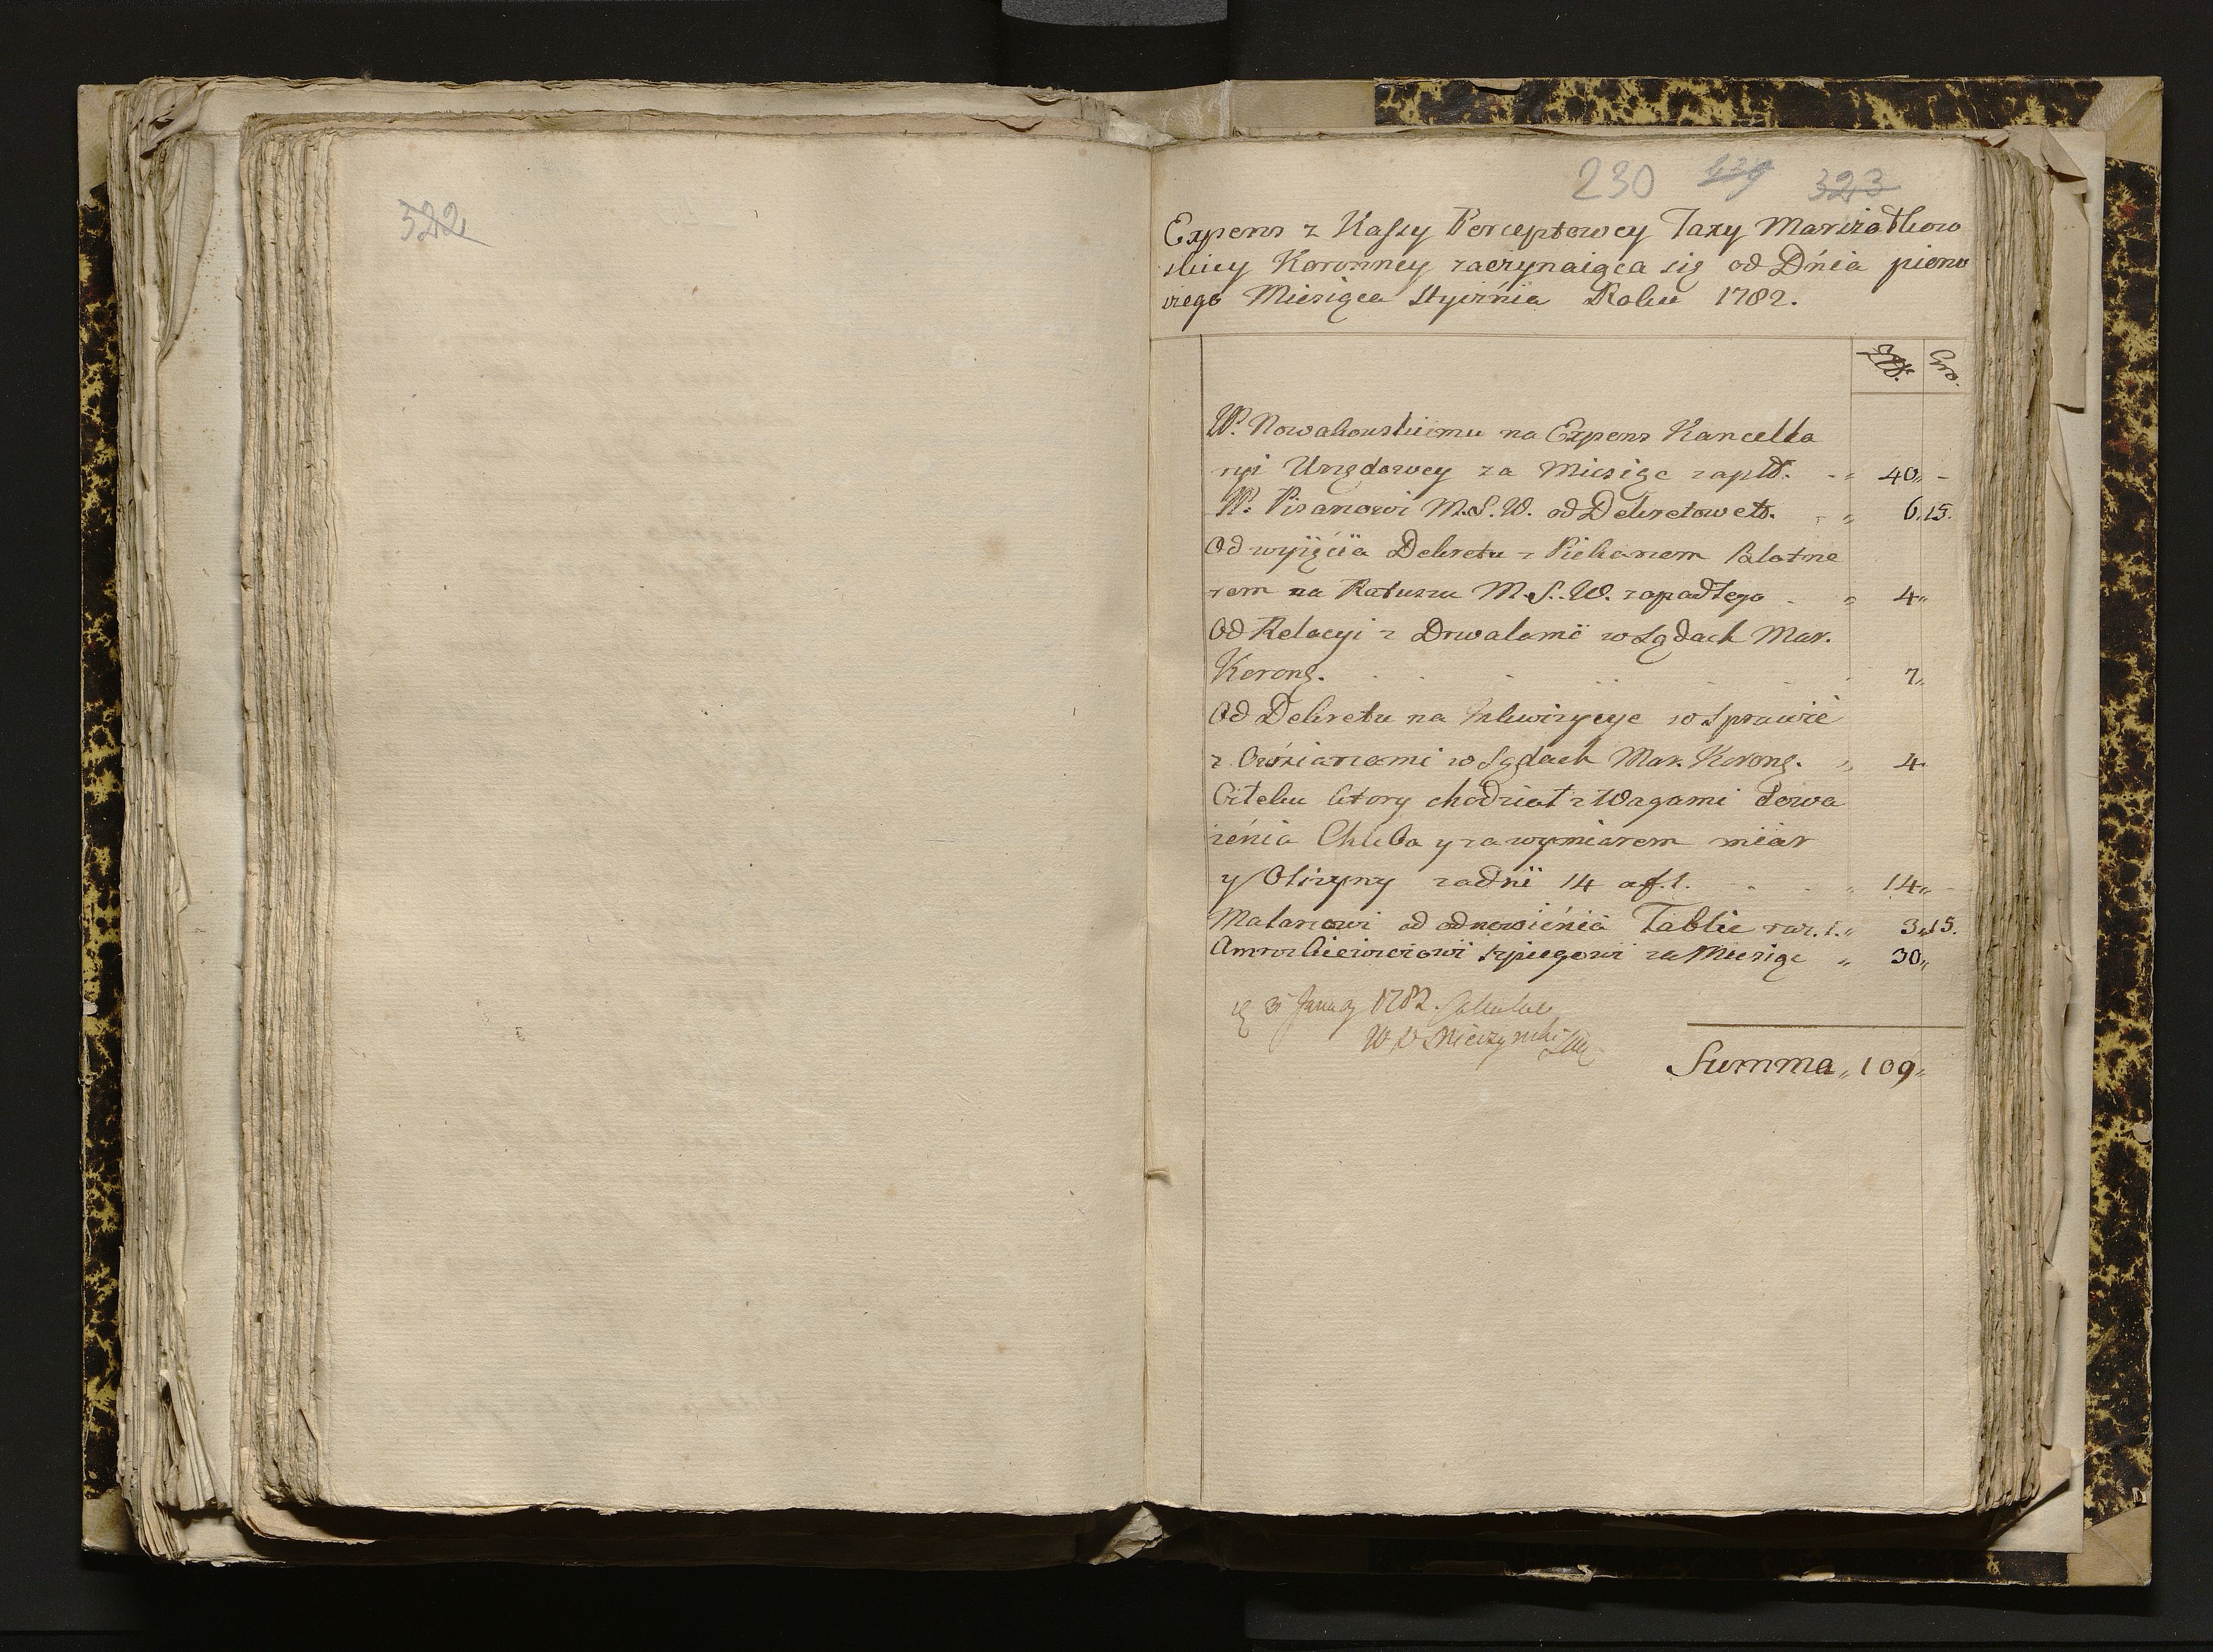 322
230 239 323
Expens z Kassy Perceptowey Taxy Marszałkow
skiey Koronney zaczynaiąca się od Dnia pierw
szego Miesiąca Stycznia Roku 1782.
Złł. Gro.
W. Nowakowskiemu na Expens Kancella
ryi Urzędowey za Miesiąc zapłł. 40,, -
W. Pisarzowi M.S.W. od Dekretow etc. 6,,15.
Od wyięcia Dekretu z Piekarzem Płatne
rem na Ratuszu M.S.W. zapadłego 4,,
Od Relacyi z Drwalami w Sądach Mar.
Koronn. 7,,
Od Dekretu na Inkwizycye w Sprawie
z Owsiarzami w Sądach Mar. Koronn. 4
Citelu ktory chodził z Wagami dowa
żenia Chleba y za wymiarem miar
y Olszyny za dni 14 a f. 1. 14,, -
Malarzowi od odnowienia Tablic 3,,15.
Szpiegowi za Miesiąc 30,,
31 January 1782.
Summa,, 109,,